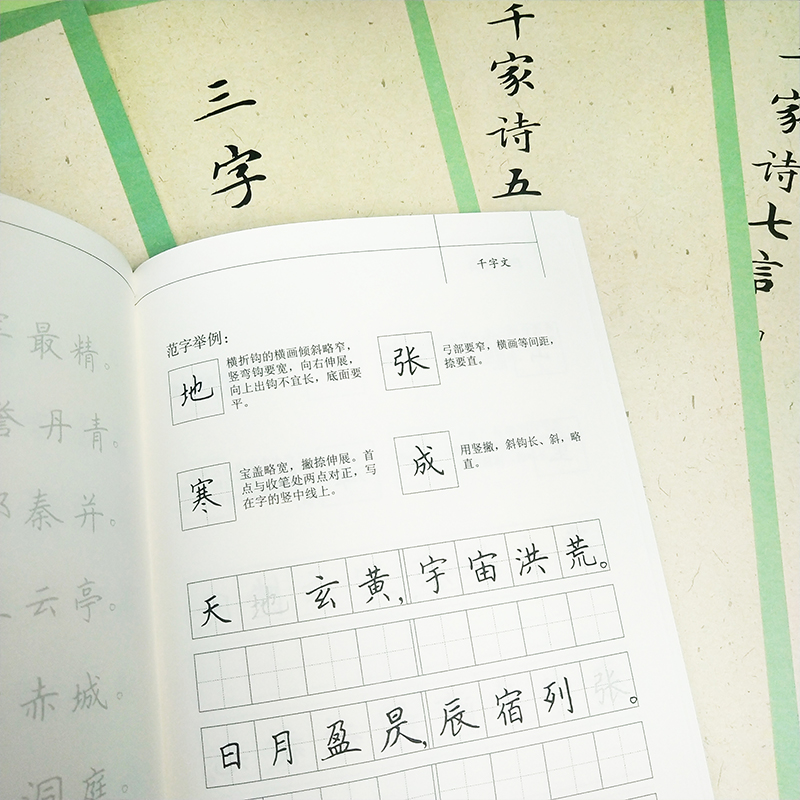 三字
千家诗五
家诗七言
千字文
范字举例：
地
横折钩的横画倾斜略窄，
竖弯钩要宽，向右伸展，
向上出钩不宜长，底面要
平。
张
弓部要窄，横画等间距，
捺要直。
寒
宝盖略宽，撇捺伸展。首
点与收笔处两点对正，写
在字的竖中线上。
成
用竖撇，斜钩长、斜，略
直。
天地玄黄，宇宙洪荒。
日月盈昃，辰宿列张。
最精。
丹青。
秦并。
云亭。
赤城。
洞庭。